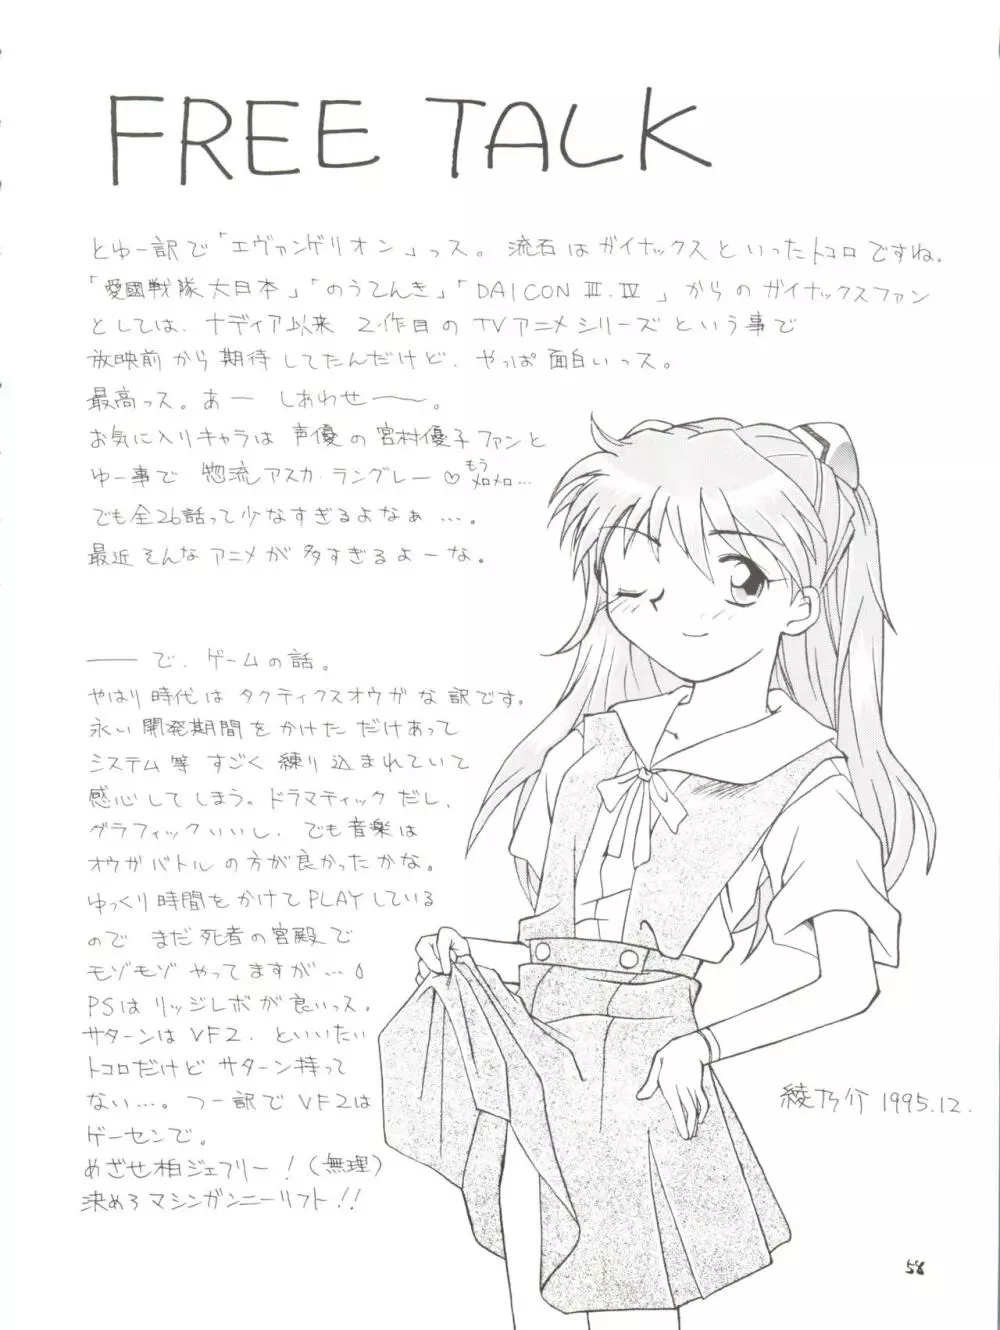 FREE TALK
とゆー訳で「エヴァンゲリオン」っス。流石はガイナックスといったトコロですね。
「愛國戦隊大日本」「のうてんき」「DAICON Ⅲ.Ⅳ」からのガイナックスファン
としては、ナディア以来2作目のTVアニメシリーズという事で
放映前から期待してたんだけど、やっぱ面白いっス。
最高っス。あー しあわせ――。
お気に入りキャラは声優の宮村優子ファンと
ゆー事で惣流アスカ・ラングレー♡もうメロメロ…
でも全26話って少なすぎるよなぁ…。
最近そんなアニメが多すぎるよーな。
――で、ゲームの話。
やはり時代はタクティクスオウガな訳です。
永い開発期間をかけただけあって
システム等すごく練り込まれていて
感心してしまう。ドラマティックだし、
グラフィックいいし、でも音楽は
オウガバトルの方が良かったかな。
ゆっくり時間をかけてPLAYしている
のでまだ死者の宮殿で
モゾモゾやってますが…。
PSはリッジレボが良いっス。
サターンはVF2、といいたい
トコロだけどサターン持って
ない…。つー訳でVF2は
ゲーセンで。
めざせ柏ジェフリー!(無理)
決めろマシンガンニーリフト!!
綾乃介 1995.12.
58